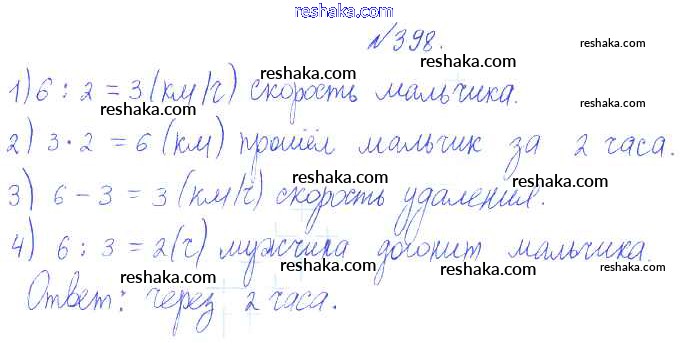 www.reshaka.com
reshaka.com
№398.
reshaka.com
reshaka.com
1) 6 : 2 = 3 (км/ч) скорость мальчика.
reshaka.com
reshaka.com
2) 3 · 2 = 6 (км) прошёл мальчик за 2 часа.
reshaka.com
reshaka.com
3) 6 - 3 = 3 (км/ч) скорость удаления.
reshaka.com
reshaka.com
4) 6 : 3 = 2 (ч) мужчина догонит мальчика.
reshaka.com
reshaka.com
Ответ: через 2 часа.
reshaka.com